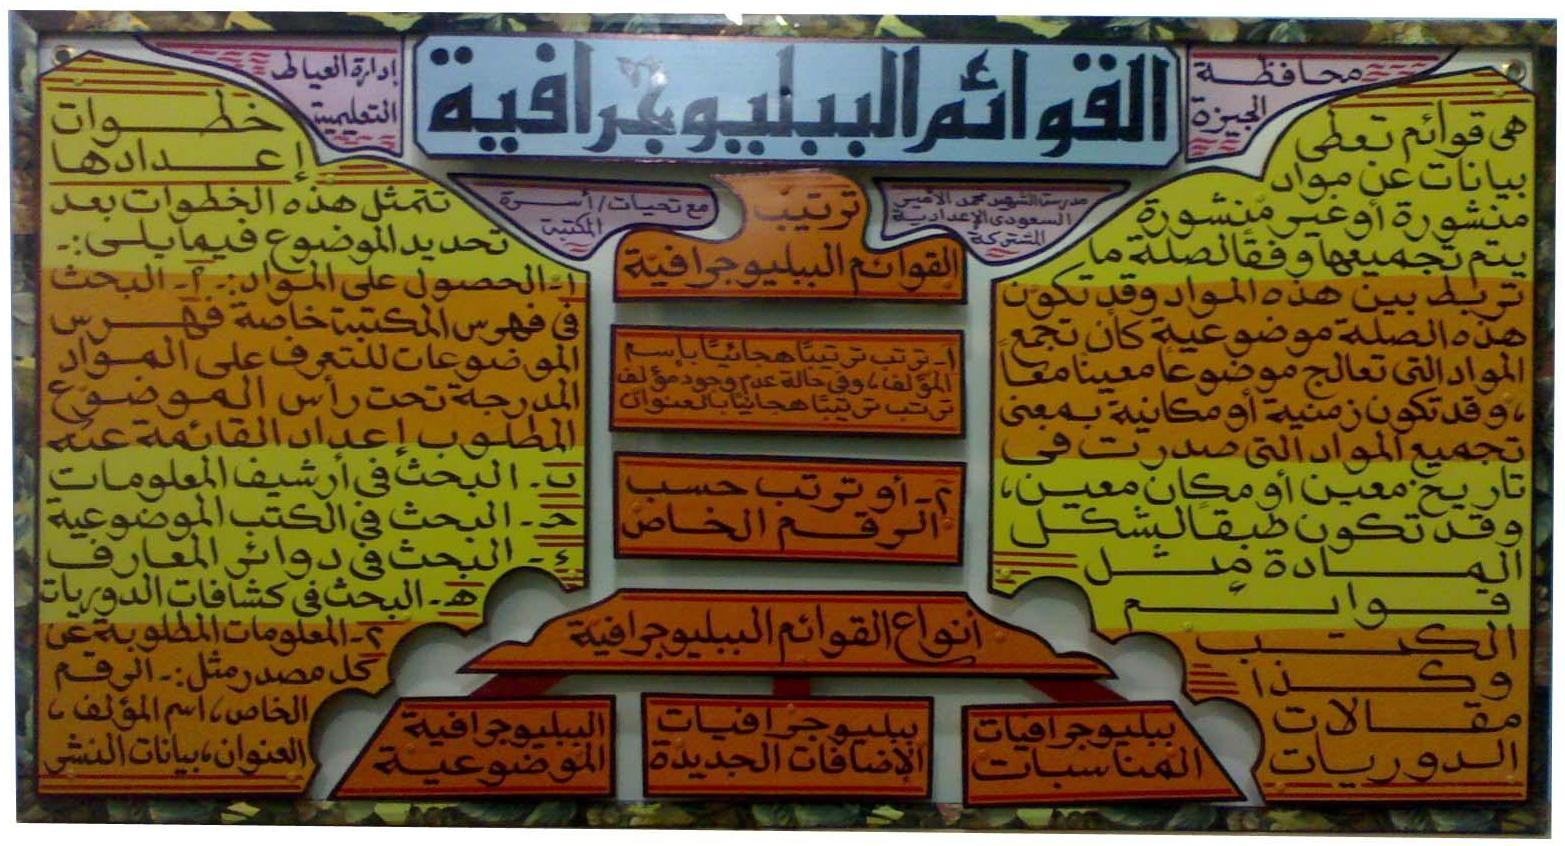 القوائم الببليوجرافية
محافظة
الجيزة
إدارة العياط
التعليمية
مدرسة الشهيد محمد الأمين
السعودى الإعدادية
المشتركة
مع تحيات/ أسرة
المكتبة
هى قوائم تعطى
بيانات عن مواد
منشورة أو غير منشورة
يتم تجميعها وفقًا لصلة ما
تربط بين هذه المواد وقد تكون
هذه الصلة موضوعية كأن تجمع
المواد التى تعالج موضوعًا معينًا معًا
، وقد تكون زمنية أو مكانية بمعنى
تجميع المواد التى صدرت فى
تاريخ معين أو مكان معين،
وقد تكون طبقًا لشكل
المادة مثل
قوائم
الكتب
وكذا
مقالات
الدوريات
ترتيب
القوائم الببليوجرافية
١- ترتب ترتيبًا هجائيًا بإسم
المؤلف، وفى حالة عدم وجود مؤلف
ترتب ترتيبًا هجائيًا بالعنوان
٢- أو ترتب حسب
الرقم الخاص
أنواع القوائم الببليوجرافية
ببليوجرافيات
المناسبات
ببليوجرافيات
الإضافات الجديدة
الببليوجرافية
الموضوعية
خطوات
إعدادها
تتمثل هذه الخطوات بعد
تحديد الموضوع فيما يلى:-
١- الحصول على المواد:- أ- البحث
فى فهرس المكتبة خاصة فهرس
الموضوعات للتعرف على المواد
المدرجة تحت رأس الموضوع
المطلوب إعداد القائمة عنه
ب- البحث فى أرشيف المعلومات
حـ- البحث فى الكتب الموضوعية
ء- البحث فى دوائر المعارف
هـ- البحث فى كشافات الدوريات
٢- المعلومات المطلوبة عن
كل مصدر مثل:- الرقم
الخاص، اسم المؤلف،
العنوان، بيانات النشر